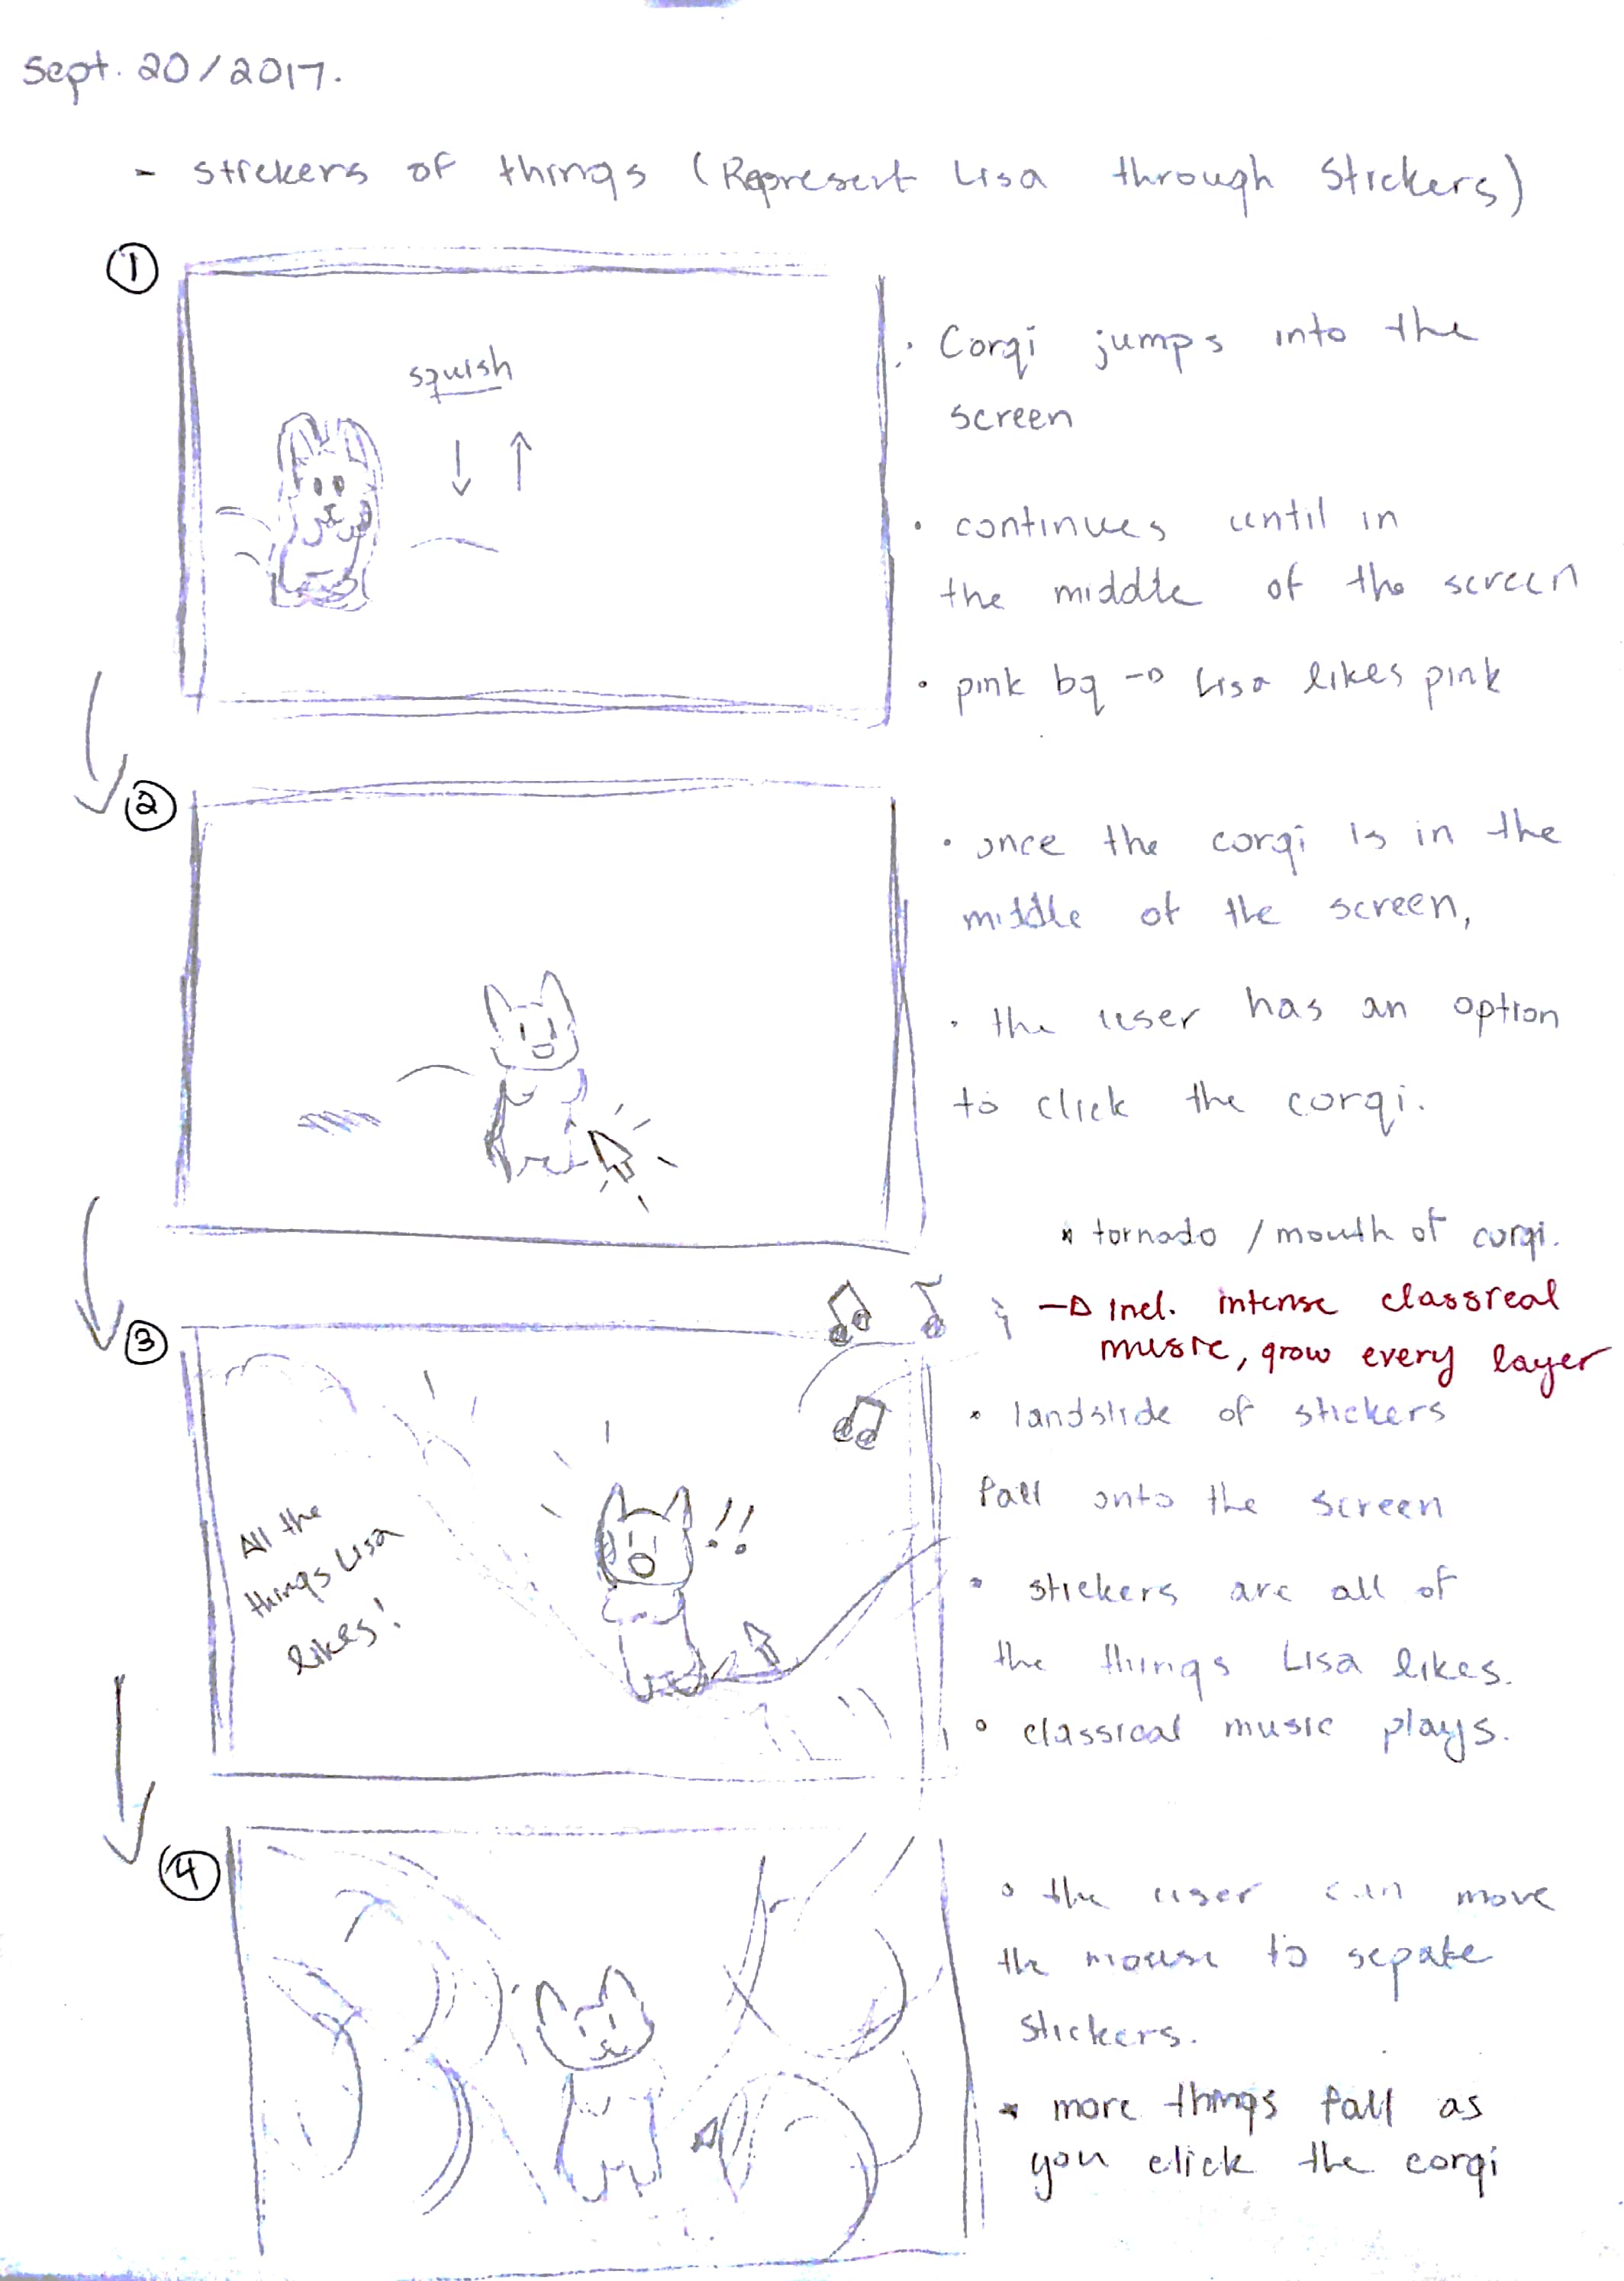 Sept. 20/2017.
- stickers of things (Represent Lisa through Stickers)
①
squish
• Corgi jumps into the
screen
• continues until in
the middle of the screen
• pink bg → Lisa likes pink
②
• once the corgi is in the
middle of the screen,
• the user has an option
to click the corgi.
* tornado / mouth of corgi.
→ incl. intense classical
music, grow every layer
③
All the
things Lisa
likes!
!!
• landslide of stickers
fall onto the screen
• stickers are all of
the things Lisa likes.
• classical music plays.
④
• the user can move
the mouse to sepate
stickers.
* more things fall as
you click the corgi